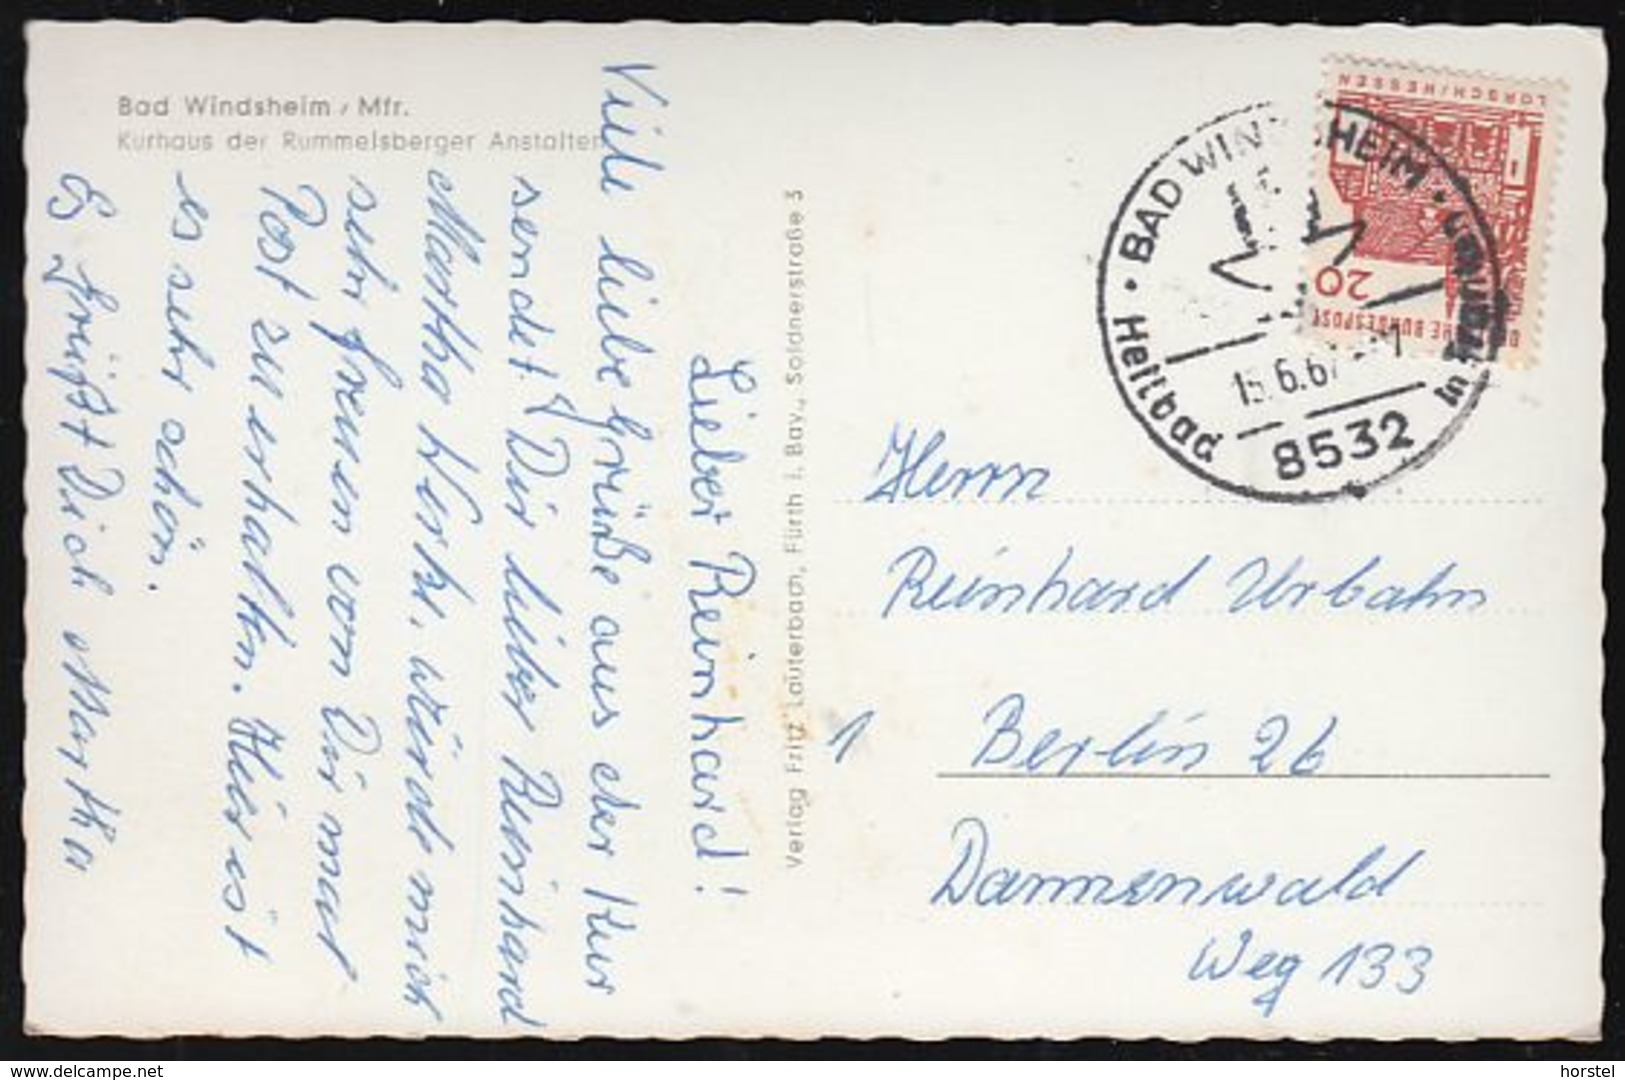 Bad Windsheim / Mfr.
Kurhaus der Rummelsberger Anstalten
Lieber Reinhard!
Viele liebe Grüße aus der Kur
sendet Dir lieber Reinhard
Martha
würde mich
sehr freuen von Dir mal
Post zu erhalten. Hier ist
es sehr schön.
Es grüßt Dich Martha
Verlag Fritz Lauterbach, Fürth i. Bay., Soldnerstraße 3
LORSCH/HESSEN
20
HE BUNDESPOST
BAD WINDSHEIM
Heilbad in
15.6.67
8532
Herrn
Reinhard Urbahn
1 Berlin 26
Dannenwald
Weg 133
www.delcampe.net
horstel